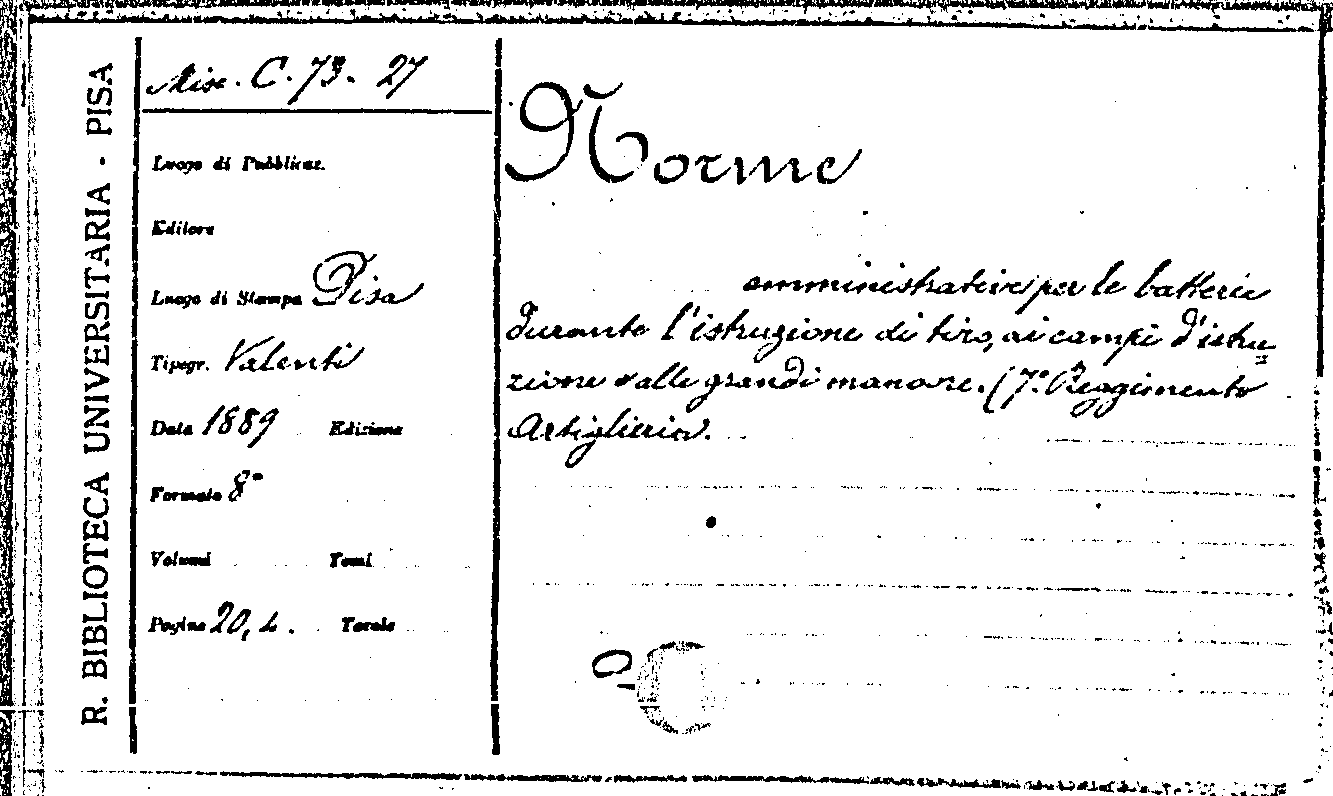 R. BIBLIOTECA UNIVERSITARIA - PISA
Misc. C. 73. 27
Luogo di Pubblicaz.
Editore
Luogo di Stampa Pisa
Tipogr. Valenti
Data 1889 Edizione
Formato 8°
Volumi Tomi
Pagine 20, Tavole
Norme
amministrative per le batterie
durante l'istruzione di tiro, ai campi d'istru=
zione e alle grandi manovre. (7° Reggimento
Artiglieria).